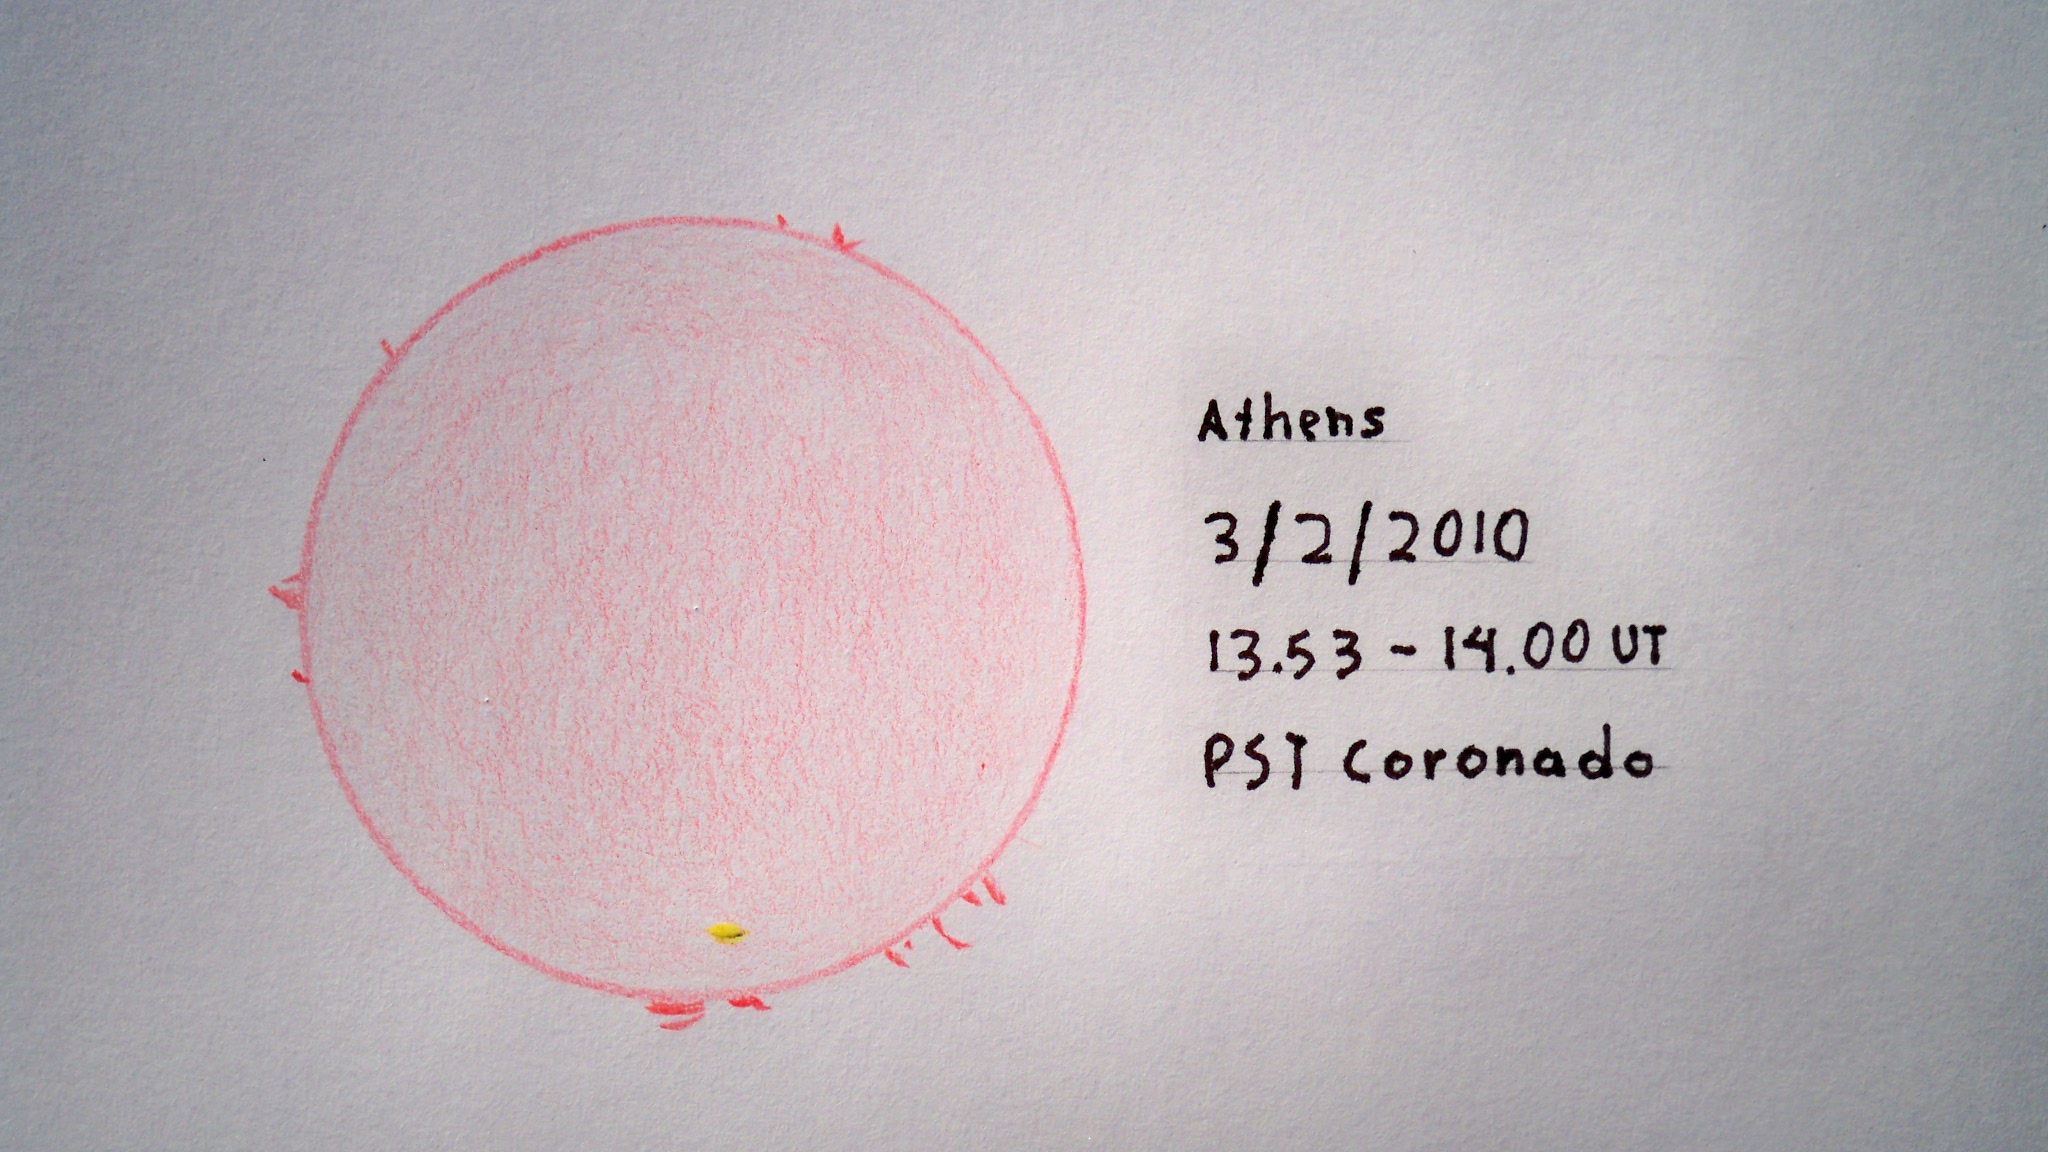 Athens
3/2/2010
13.53 - 14.00 UT
PST Coronado